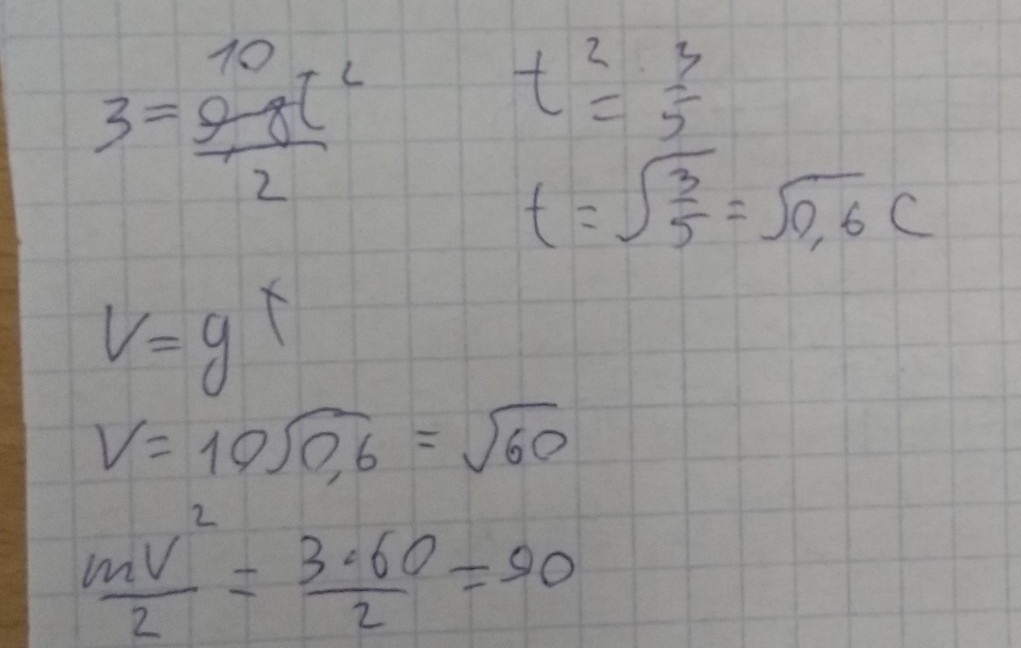 3 = 10t²/2
t² = 3/5
t = √(3/5) = √0,6 c
V = gt
V = 10√0,6 = √60
mV²/2 = 3·60/2 = 90